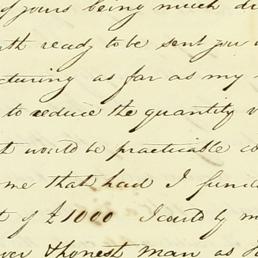 of yours being much
ready to be sent you
cturing as far as my
to reduce the quantity
would be practicable
me that had I
of £1000 I could
honest man as